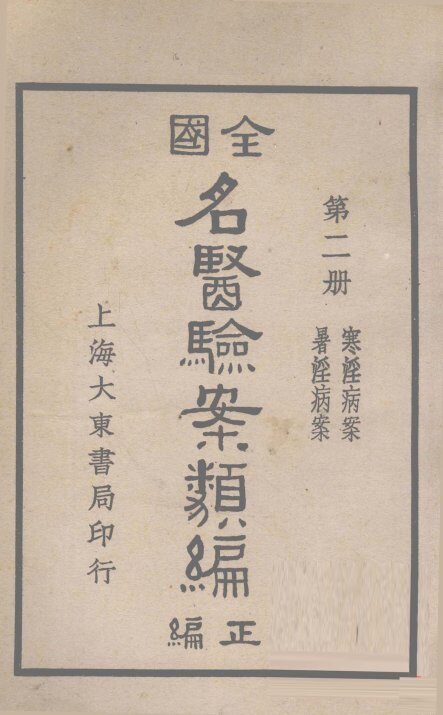 第二册
寒淫病案
暑淫病案
全國
名醫驗案類編
正編
上海大東書局印行